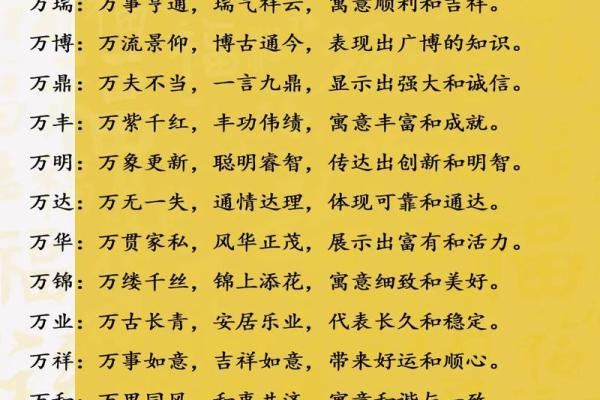 万瑞：万事亨通，瑞气祥云，寓意顺利和吉祥。
万博：万流景仰，博古通今，表现出广博的知识。
万鼎：万夫不当，一言九鼎，显示出强大和诚信。
万丰：万紫千红，丰功伟绩，寓意丰富和成就。
万明：万象更新，聪明睿智，传达出创新和明智。
万达：万无一失，通情达理，体现可靠和通达。
万华：万贯家私，风华正茂，展示出富有和活力。
万锦：万缕千丝，锦上添花，寓意细致和美好。
万业：万古长青，安居乐业，代表长久和稳定。
万祥：万事如意，吉祥如意，带来好运和顺心。
万和：万里同风，和衷共济，寓意和谐与一致。